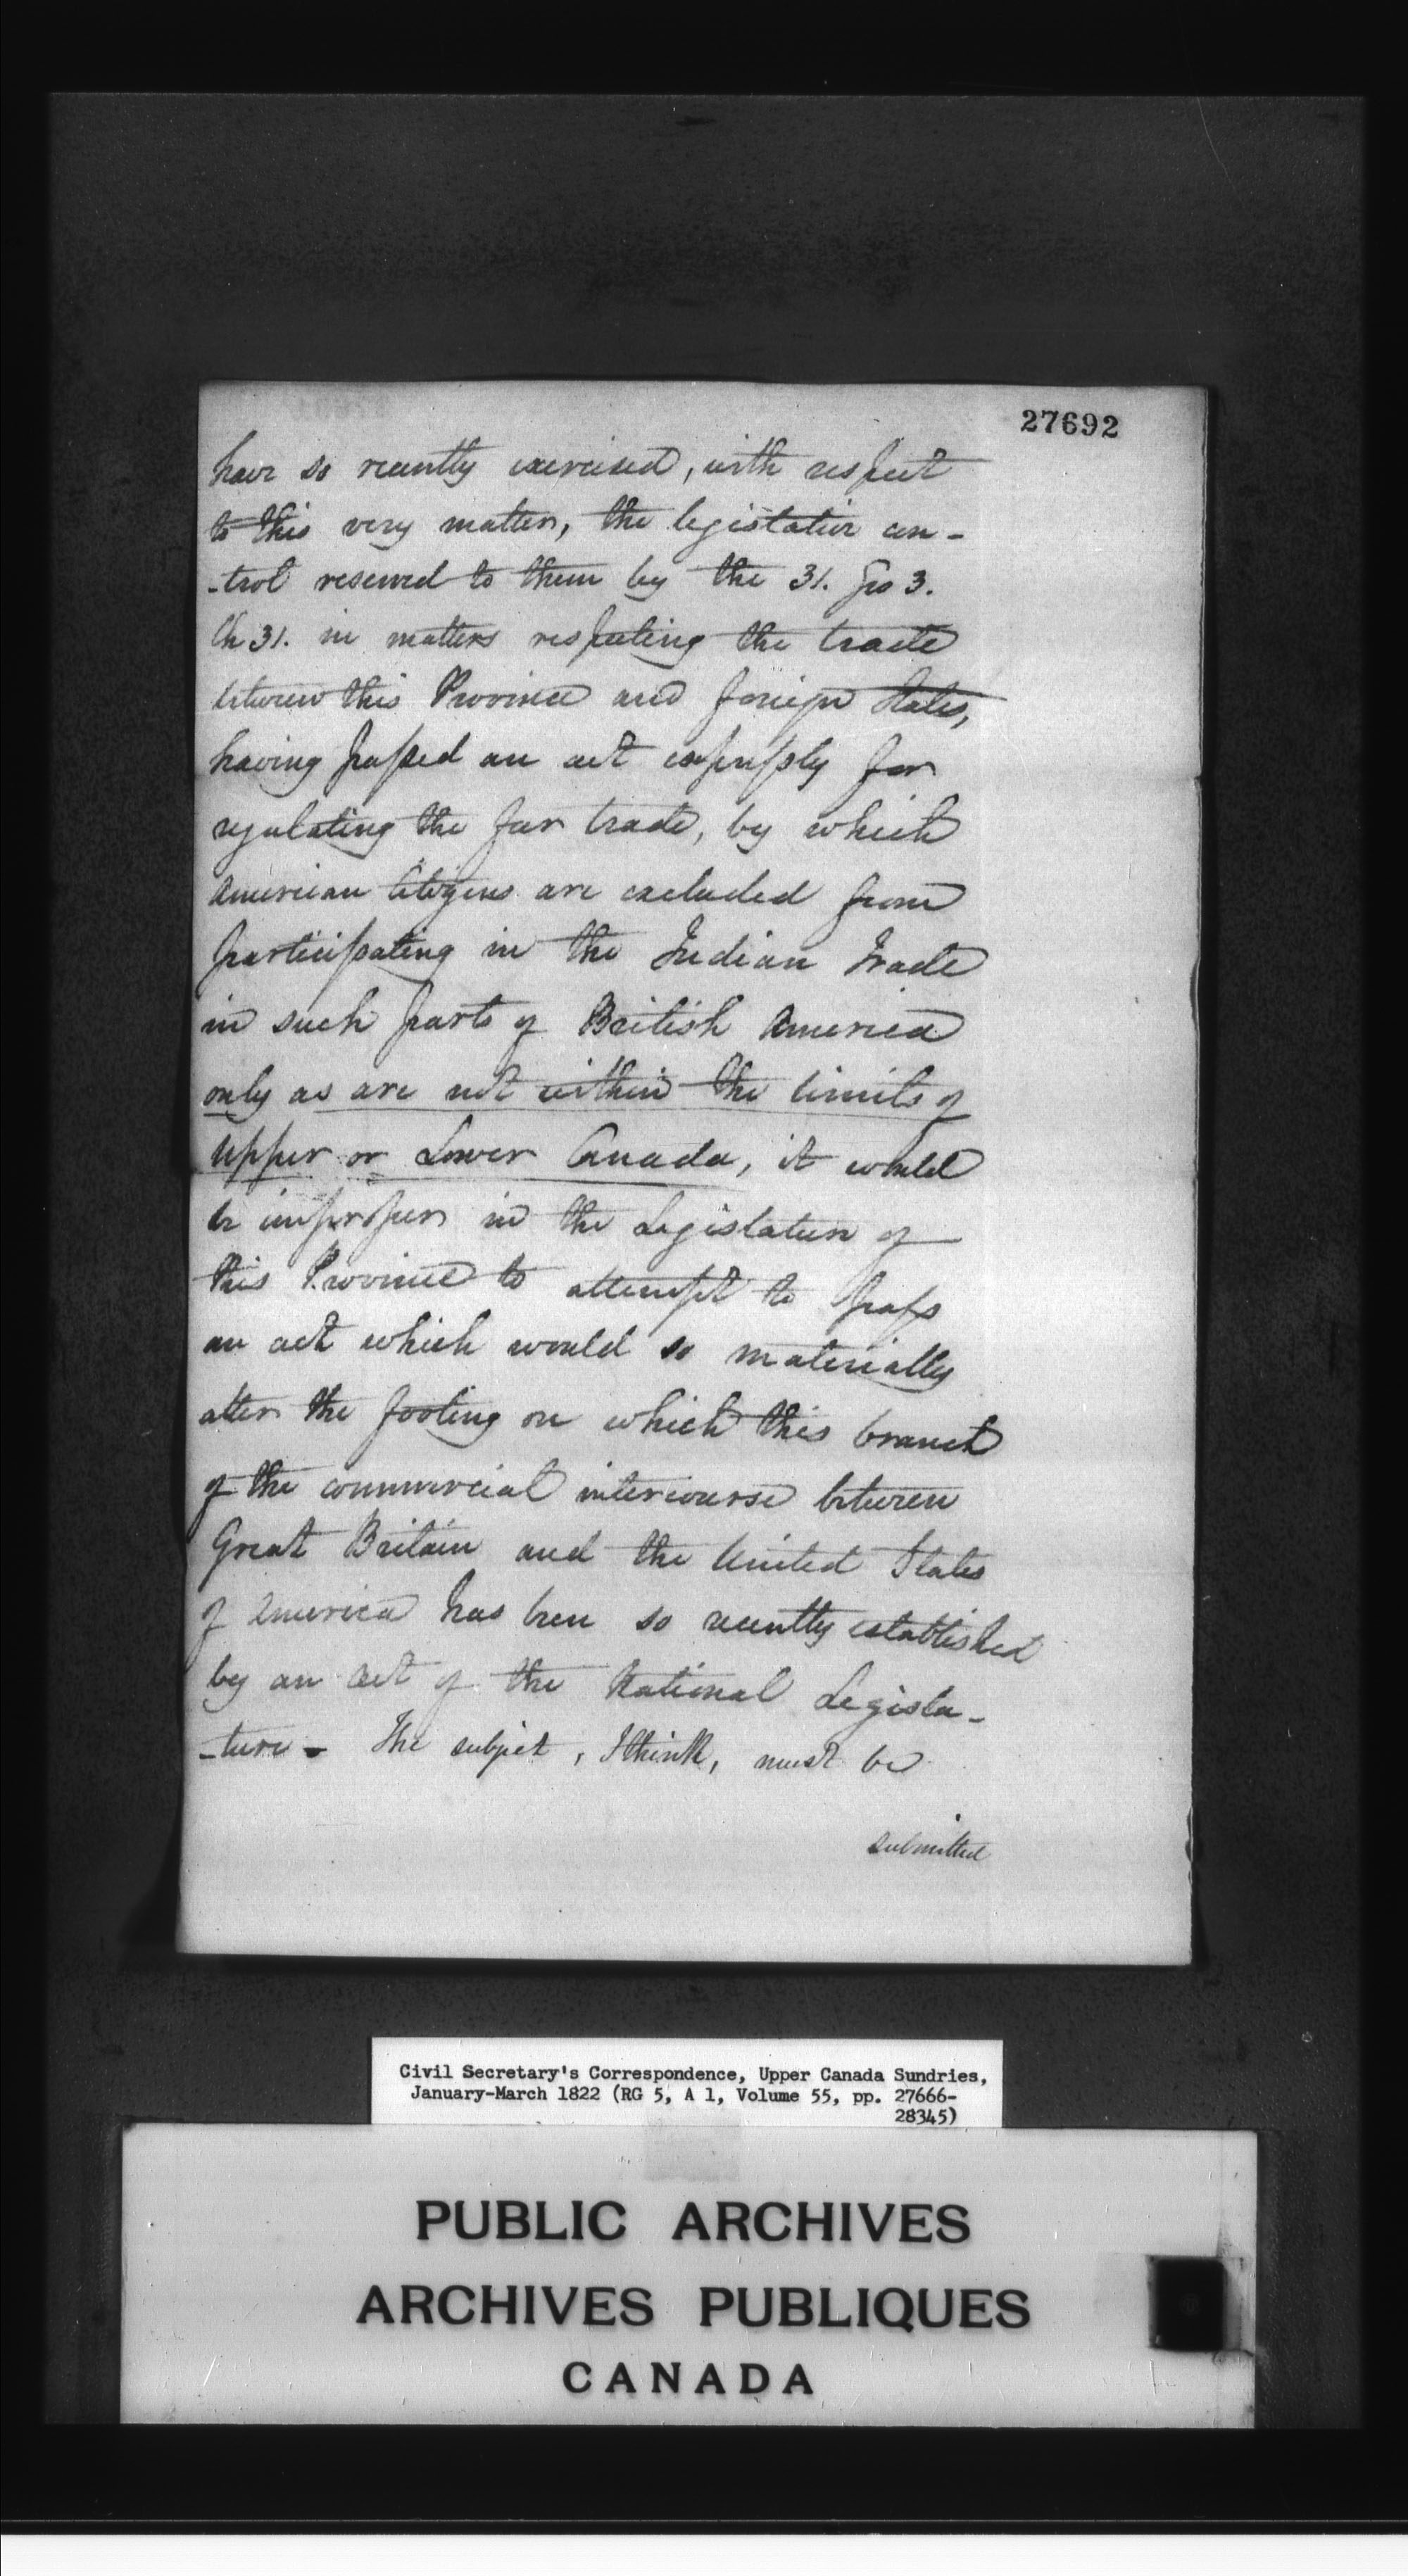 27692
have so recently exercised, with respect
to this very matter, the legislative con-
-trol reserved to them by the 31. Geo 3.
Ch 31. in matters respecting the trade
between this Province and foreign States,
having passed an act expressly for
regulating the fur trade, by which
American Citizens are excluded from
participating in the Indian Trade
in such parts of British America
only as are not within the limits of
Upper or Lower Canada, it would
be improper in the Legislature of
this Province to attempt to pass
an act which would so materially
alter the footing on which this branch
of the commercial intercourse between
Great Britain and the United States
of America has been so recently established
by an act of the National Legisla-
-ture - The subject, I think, must be
submitted
Civil Secretary's Correspondence, Upper Canada Sundries,
January-March 1822 (RG 5, A 1, Volume 55, pp. 27666-
28345)
PUBLIC ARCHIVES
ARCHIVES PUBLIQUES
CANADA